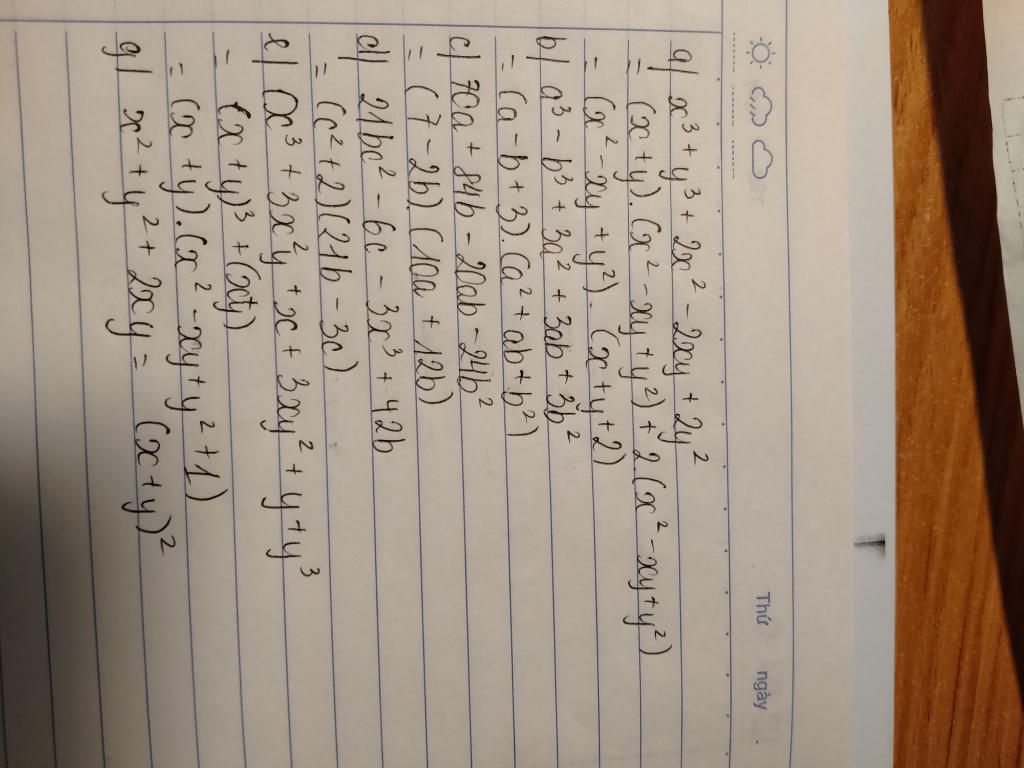 Thứ ngày
a) x³ + y³ + 2x² - 2xy + 2y²
= (x + y).(x² - xy + y²) + 2(x² - xy + y²)
= (x² - xy + y²).(x + y + 2)
b) a³ - b³ + 3a² + 3ab + 3b²
= (a - b + 3).(a² + ab + b²)
c) 70a + 84b - 20ab - 24b²
= (7 - 2b).(10a + 12b)
d) 21bc² - 6c - 3x³ + 42b
= (c² + 2)(21b - 3c)
e) (x³ + 3x²y + x + 3xy² + y + y³
= (x + y)³ + (x+y)
= (x + y).(x² - xy + y² + 1)
g) x² + y² + 2xy = (x + y)²